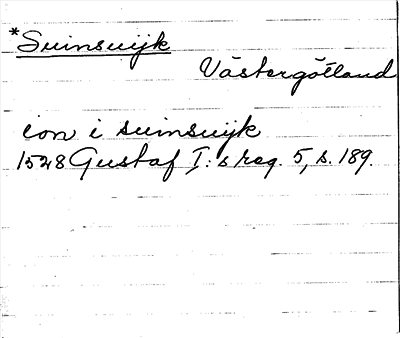 *Suinsuijk
Västergötland
ion i suinsuijk
1528 Gustaf I:s reg. 5, s. 189.